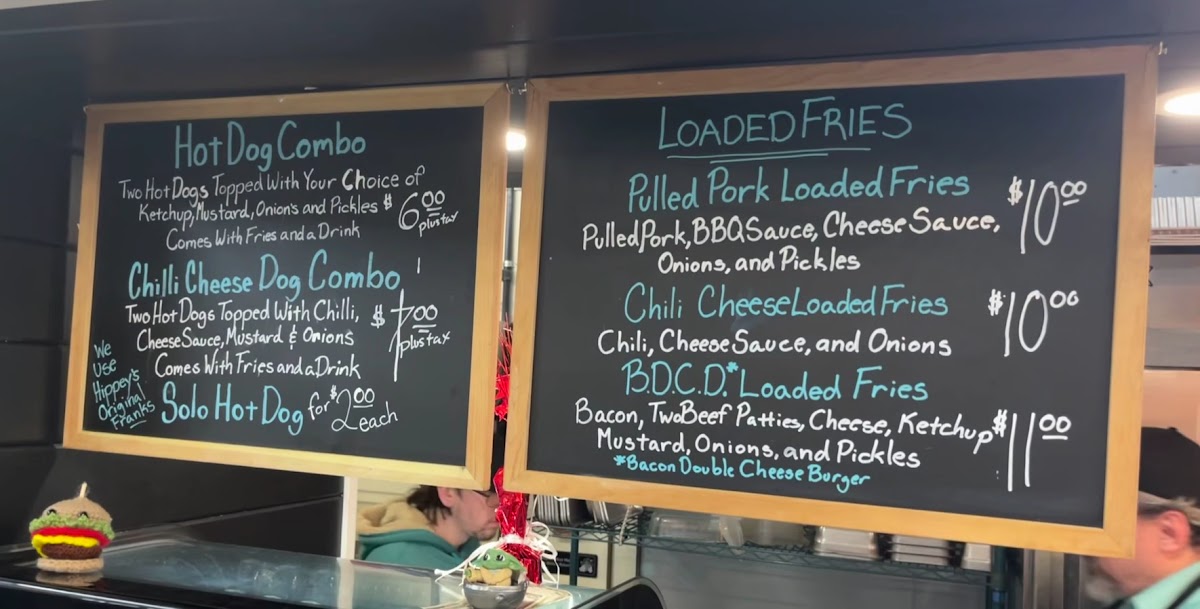 Hot Dog Combo
Two Hot Dogs Topped With Your Choice of
Ketchup, Mustard, Onions and Pickles $6.00
plus tax
Comes With Fries and a Drink
Chilli Cheese Dog Combo
Two Hot Dogs Topped With Chilli,
Cheese Sauce, Mustard & Onions $7.00
plus tax
Comes With Fries and a Drink
We
Use
Hippey's
Original
Franks
Solo Hot Dog for $2.00 each
LOADED FRIES
Pulled Pork Loaded Fries $10.00
Pulled Pork, BBQ Sauce, Cheese Sauce,
Onions, and Pickles
Chili Cheese Loaded Fries $10.00
Chili, Cheese Sauce, and Onions
B.D.C.D.* Loaded Fries
Bacon, Two Beef Patties, Cheese, Ketchup $11.00
Mustard, Onions, and Pickles
*Bacon Double Cheese Burger